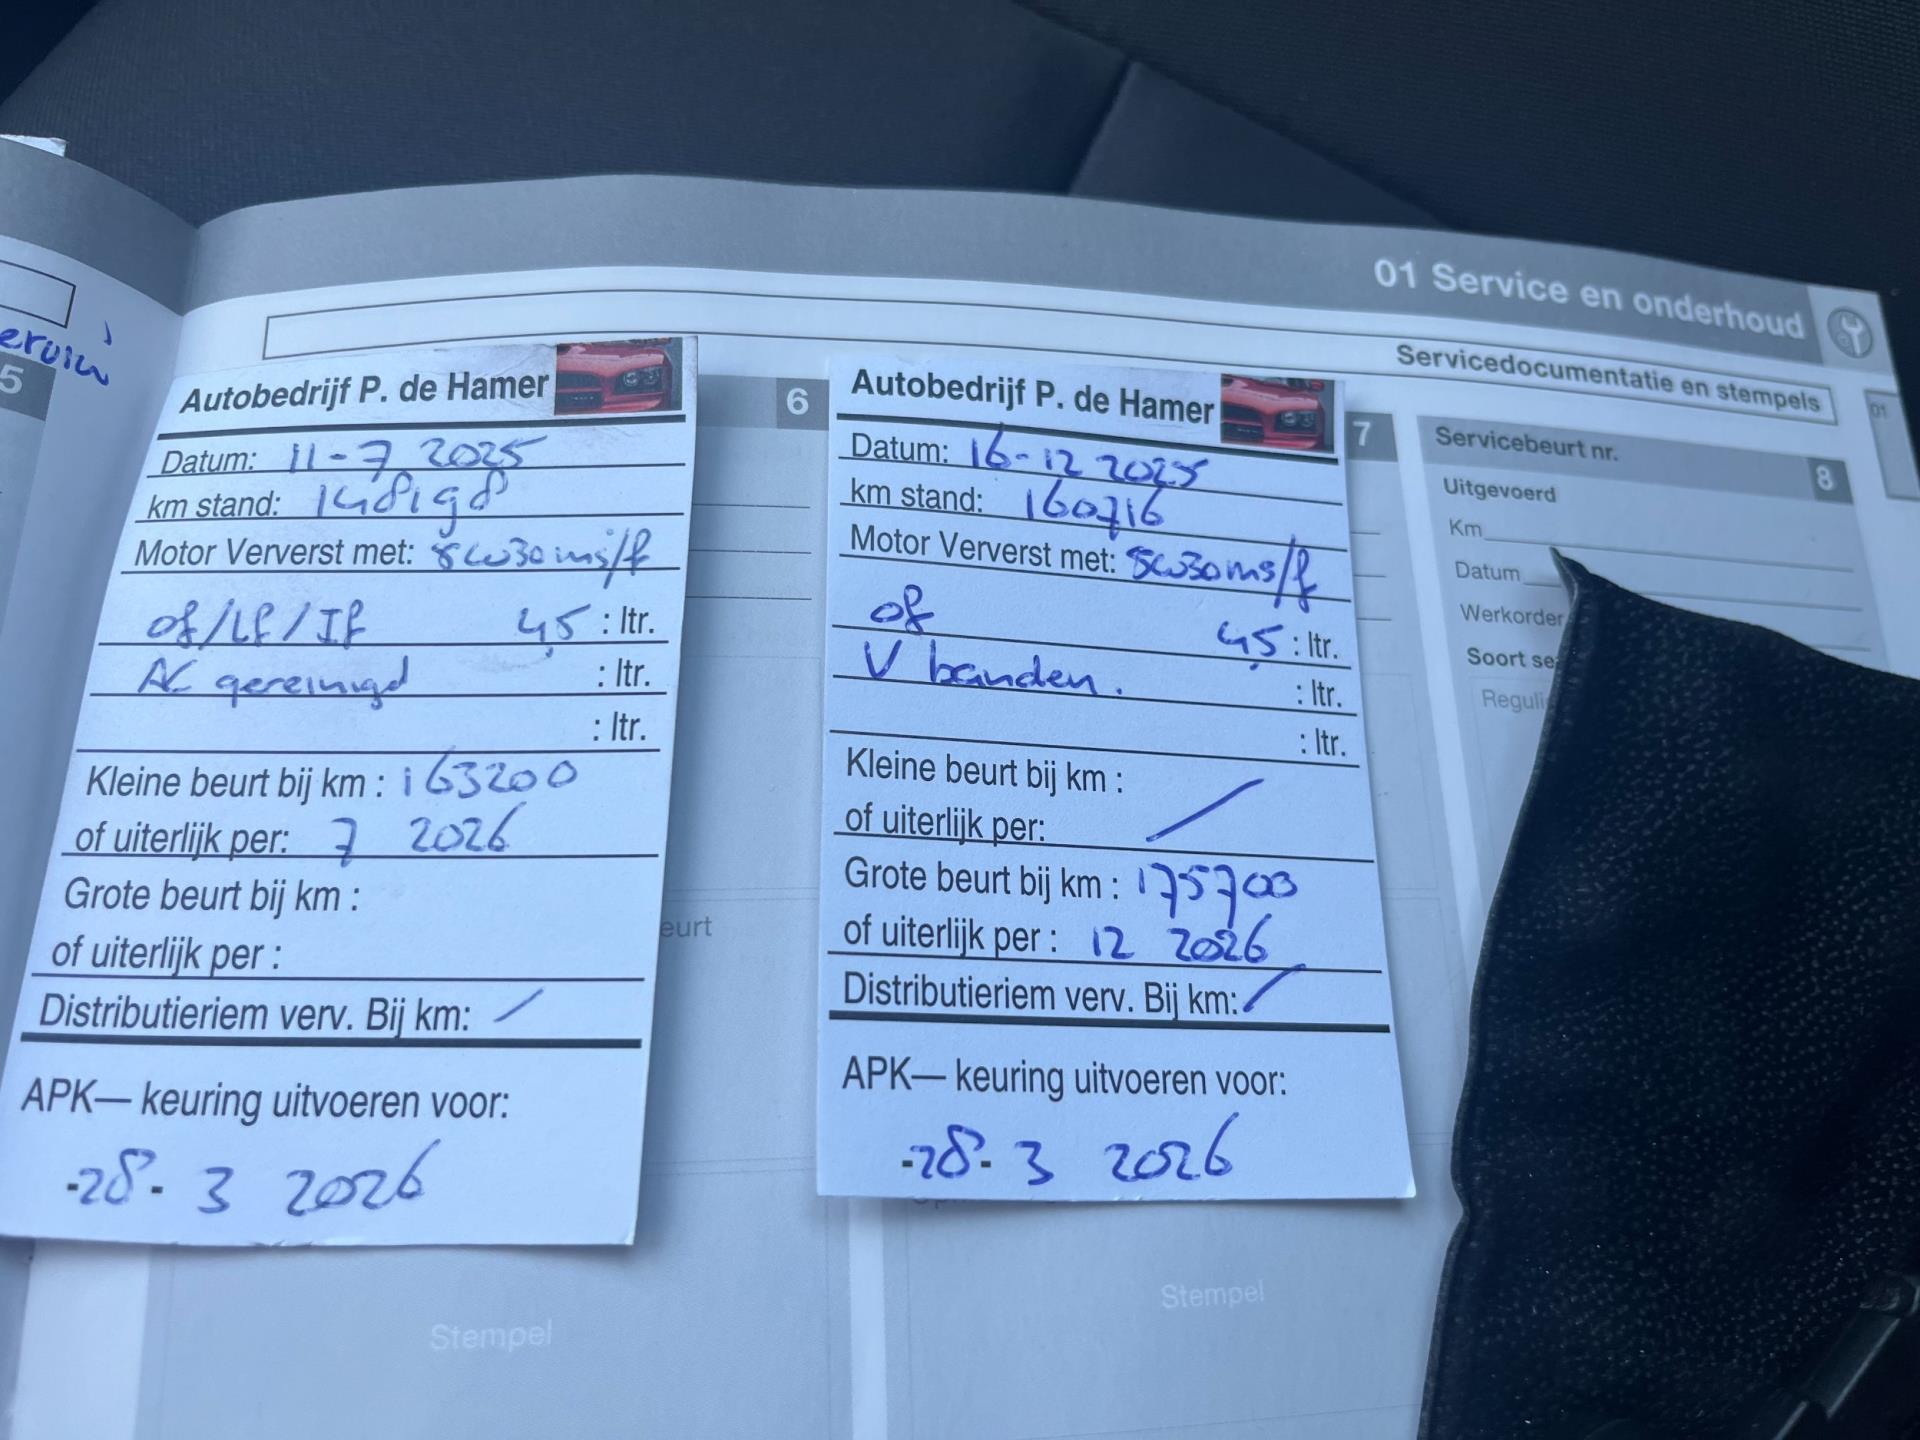 01 Service en onderhoud
Servicedocumentatie en stempels
01
5
6
7
Autobedrijf P. de Hamer
Datum: 11-7 2025
km stand: 148198
Motor Ververst met: 5w30 ms/f
of/Lf/If 4,5 : ltr.
AC gereinigd : ltr.
: ltr.
Kleine beurt bij km : 163200
of uiterlijk per: 7 2026
Grote beurt bij km :
of uiterlijk per :
Distributieriem verv. Bij km: /
APK— keuring uitvoeren voor:
-28- 3 2026
Autobedrijf P. de Hamer
Datum: 16-12 2025
km stand: 160716
Motor Ververst met: 5w30 ms/f
of 4,5 : ltr.
V banden. : ltr.
: ltr.
Kleine beurt bij km :
of uiterlijk per: /
Grote beurt bij km : 175700
of uiterlijk per : 12 2026
Distributieriem verv. Bij km: /
APK— keuring uitvoeren voor:
-28- 3 2026
Servicebeurt nr.
8
Uitgevoerd
Km
Datum
Werkorder
Soort se
Reguli
eurt
Stempel
Stempel